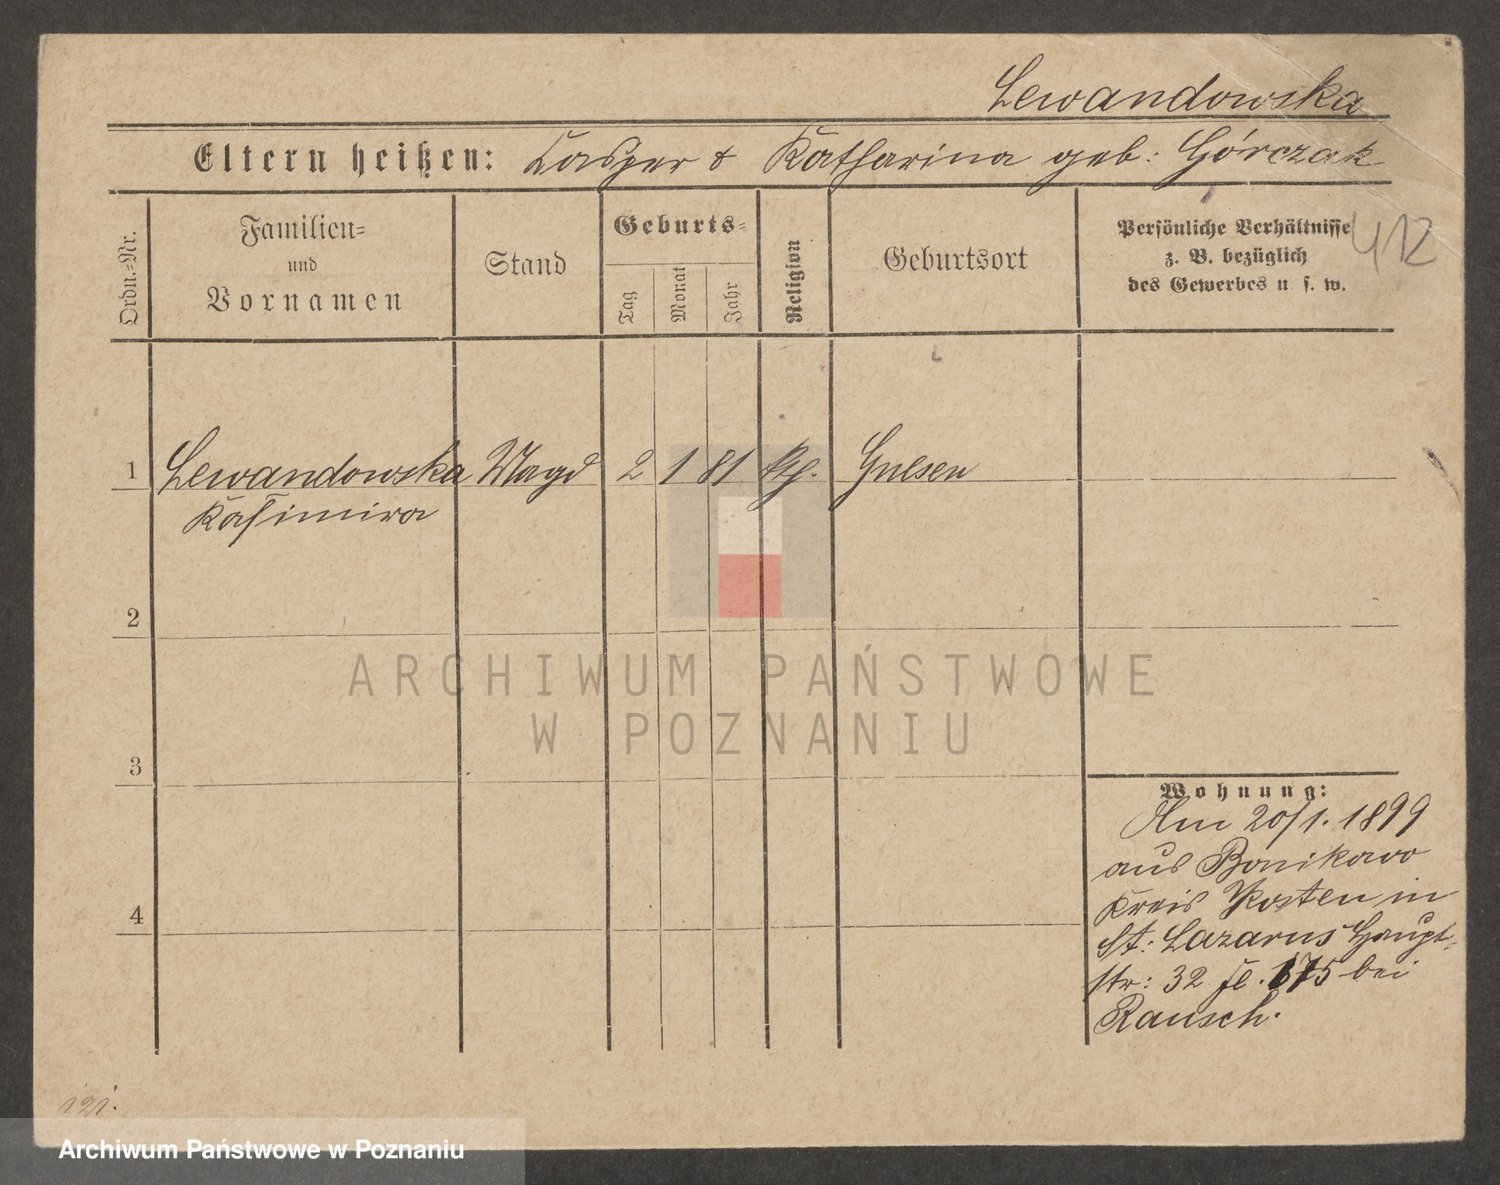 Lewandowska
Eltern heißen: Casper & Katharina geb: Górczak
Ordn.-Nr.
Familien-
und
Vornamen
Stand
Geburts-
Tag
Monat
Jahr
Religion
Geburtsort
Persönliche Verhältnisse
z. B. bezüglich
des Gewerbes u. s. w.
412
1 Lewandowska Magd 2 1 81 kth. Gulsen
Kasimira
2
3
4
ARCHIWUM PAŃSTWOWE
W POZNANIU
Wohnung:
Am 20/1. 1899
aus Bonikowo
Kreis Kosten in
St: Lazarus Haupt-
str: 32 Fl. 175 bei
Rausch.
121.
Archiwum Państwowe w Poznaniu